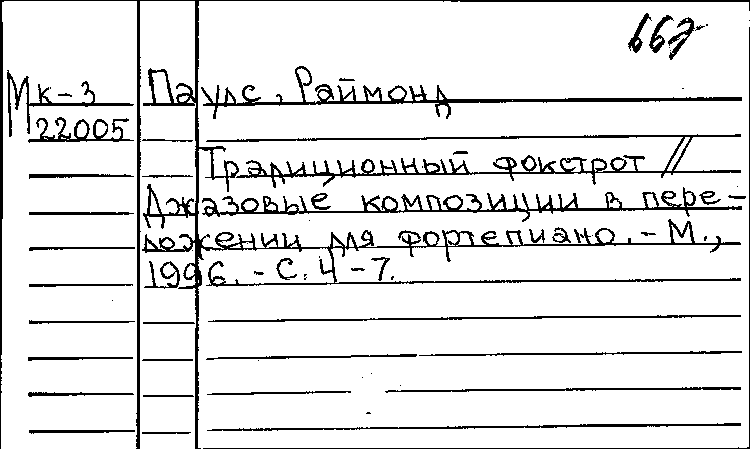 667
Мк-3 Паулс, Раймонд
22005
Традиционный фокстрот //
Джазовые композиции в пере-
ложении для фортепиано. - М.,
1996. - С. 4-7.